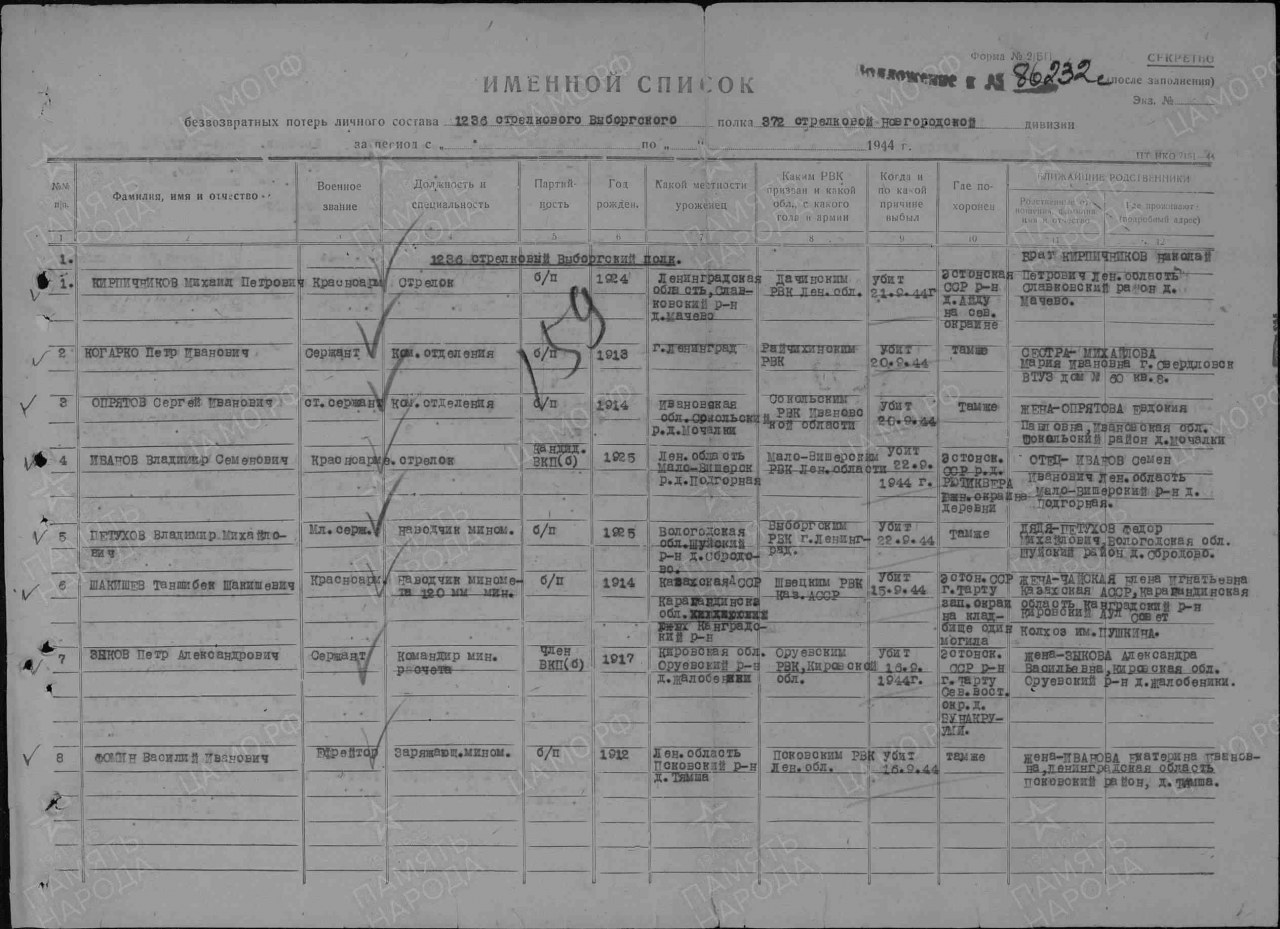 Форма № 2(Б)
СЕКРЕТНО
Приложение к № 86232с
(после заполнения)
ИМЕННОЙ СПИСОК
Экз. №
безвозвратных потерь личного состава 1236 стрелкового Выборгского полка 372 стрелковой новгородской дивизии
за период с „ “ по „ “ 1944 г.
№№ п/п.
Фамилия, имя и отчество
Военное звание
Должность и специальность
Партий-ность
Год рожден.
Какой местности уроженец
Каким РВК призван и какой обл., с какого года в армии
Когда и по какой причине выбыл
Где по-хоронен
БЛИЖАЙШИЕ РОДСТВЕННИКИ
Где проживают (подробный адрес)
1 2 3 4 5 6 7 8 9 10 11 12
1. 1236 стрелковый Выборгский полк.
159
1. КИРПИЧНИКОВ Михаил Петрович Красноарм. Стрелок б/п 1924
Ленинградская область, Слав-ковский р-н д.мачево
Дачинским РВК Лен.обл.
убит 21.9.44г
Эстонская ССР р-н д.АЙДУ на сев. окраине
Брат КИРПИЧНИКОВ николай Петрович Лен.область Славковский район д. мачево.
2 КОГАРКО Петр Иванович Сержант Ком.отделения б/п 1913
г.Ленинград
Райчихинским РВК
убит 20.9.44
тамже
СЕСТРА-МИХАЙЛОВА Мария Ивановна г.свердловск ВТУЗ дом № 60 кв.8.
3 ОПРЯТОВ Сергей Иванович ст.сержант ком.отделения б/п 1914
Ивановская обл.Сокольский р.д.Мочалки
Сокольским РВК Иваново кой области
убит 20.9.44
тамже
ЖЕНА-ОПРЯТОВА Евдокия Павловна,Ивановская обл. Сокольский район д.мочалки
4 ИВАНОВ Владимир Семенович Красноарме. стрелок Кандид. ВКП(б) 1925
Лен.область Мало-Вишерск р.д.Подгорная
Мало-Вишерским РВК Лен.области
убит 22.9. 1944 г.
Эстонск. ССР р.д. окраина деревни
ОТЕЦ-ИВАНОВ Семен Иванович Лен.область Мало-Вишерский р-н д. Подгорная.
5 ПЕТУХОВ Владимир Михайло-вич Мл.серж. наводчик мином. б/п 1925
Вологодская обл.Шуйский р-н д.Сбродо-во.
Выборгским РВК г.Ленинг-рад.
Убит 22.9.44
тамже
ДЯДЯ-ПЕТУХОВ федор Михайлович,Вологодская обл. Шуйский район д.сбродово.
6 ШАКИШЕВ Таншибек Шакишевич Красноарм. наводчик миноме-та 120 мм мин. б/п 1914
Казахская АССР Карагандинска обл. Канградс-кий р-н
Швецким РВК Каз.АССР
Убит 15.9.44
Эстон.ССР г.тарту зап.окраи на клад-бище один могила
ЖЕНА-ЧАЙСКАЯ Елена Игнатьевна Казахская АССР,карагандинская область Канградский р-н Кировский Аул Совет Колхоз им.ПУШКИНА.
7 ЗЫКОВ Петр Александрович Сержант Командир мин. расчета Член ВКП(б) 1917
Кировская обл. Оруевский р-н д.Жалобенини
Оруевским РВК,Кировской обл.
Убит 16.9. 1944г.
Эстонск. ССР р-н г.тарту Сев.вост. окр.д.
Жена-ЗЫКОВА Александра Васильевна,Кировская обл. Оруевский р-н д.жалобенини.
8 ФОМИН Василий Иванович Ефрейтор Заряжающ.мином. б/п 1912
Лен.область Псковский р-н д.Тямша
Псковским РВК Лен.обл.
убит 16.9.44
тамже
жена-ИВАНОВА Екатерина Иванов-на,Ленинградская область псковский район, д.тямша.
ЦАМО.РФ
ПАМЯТЬ НАРОДА